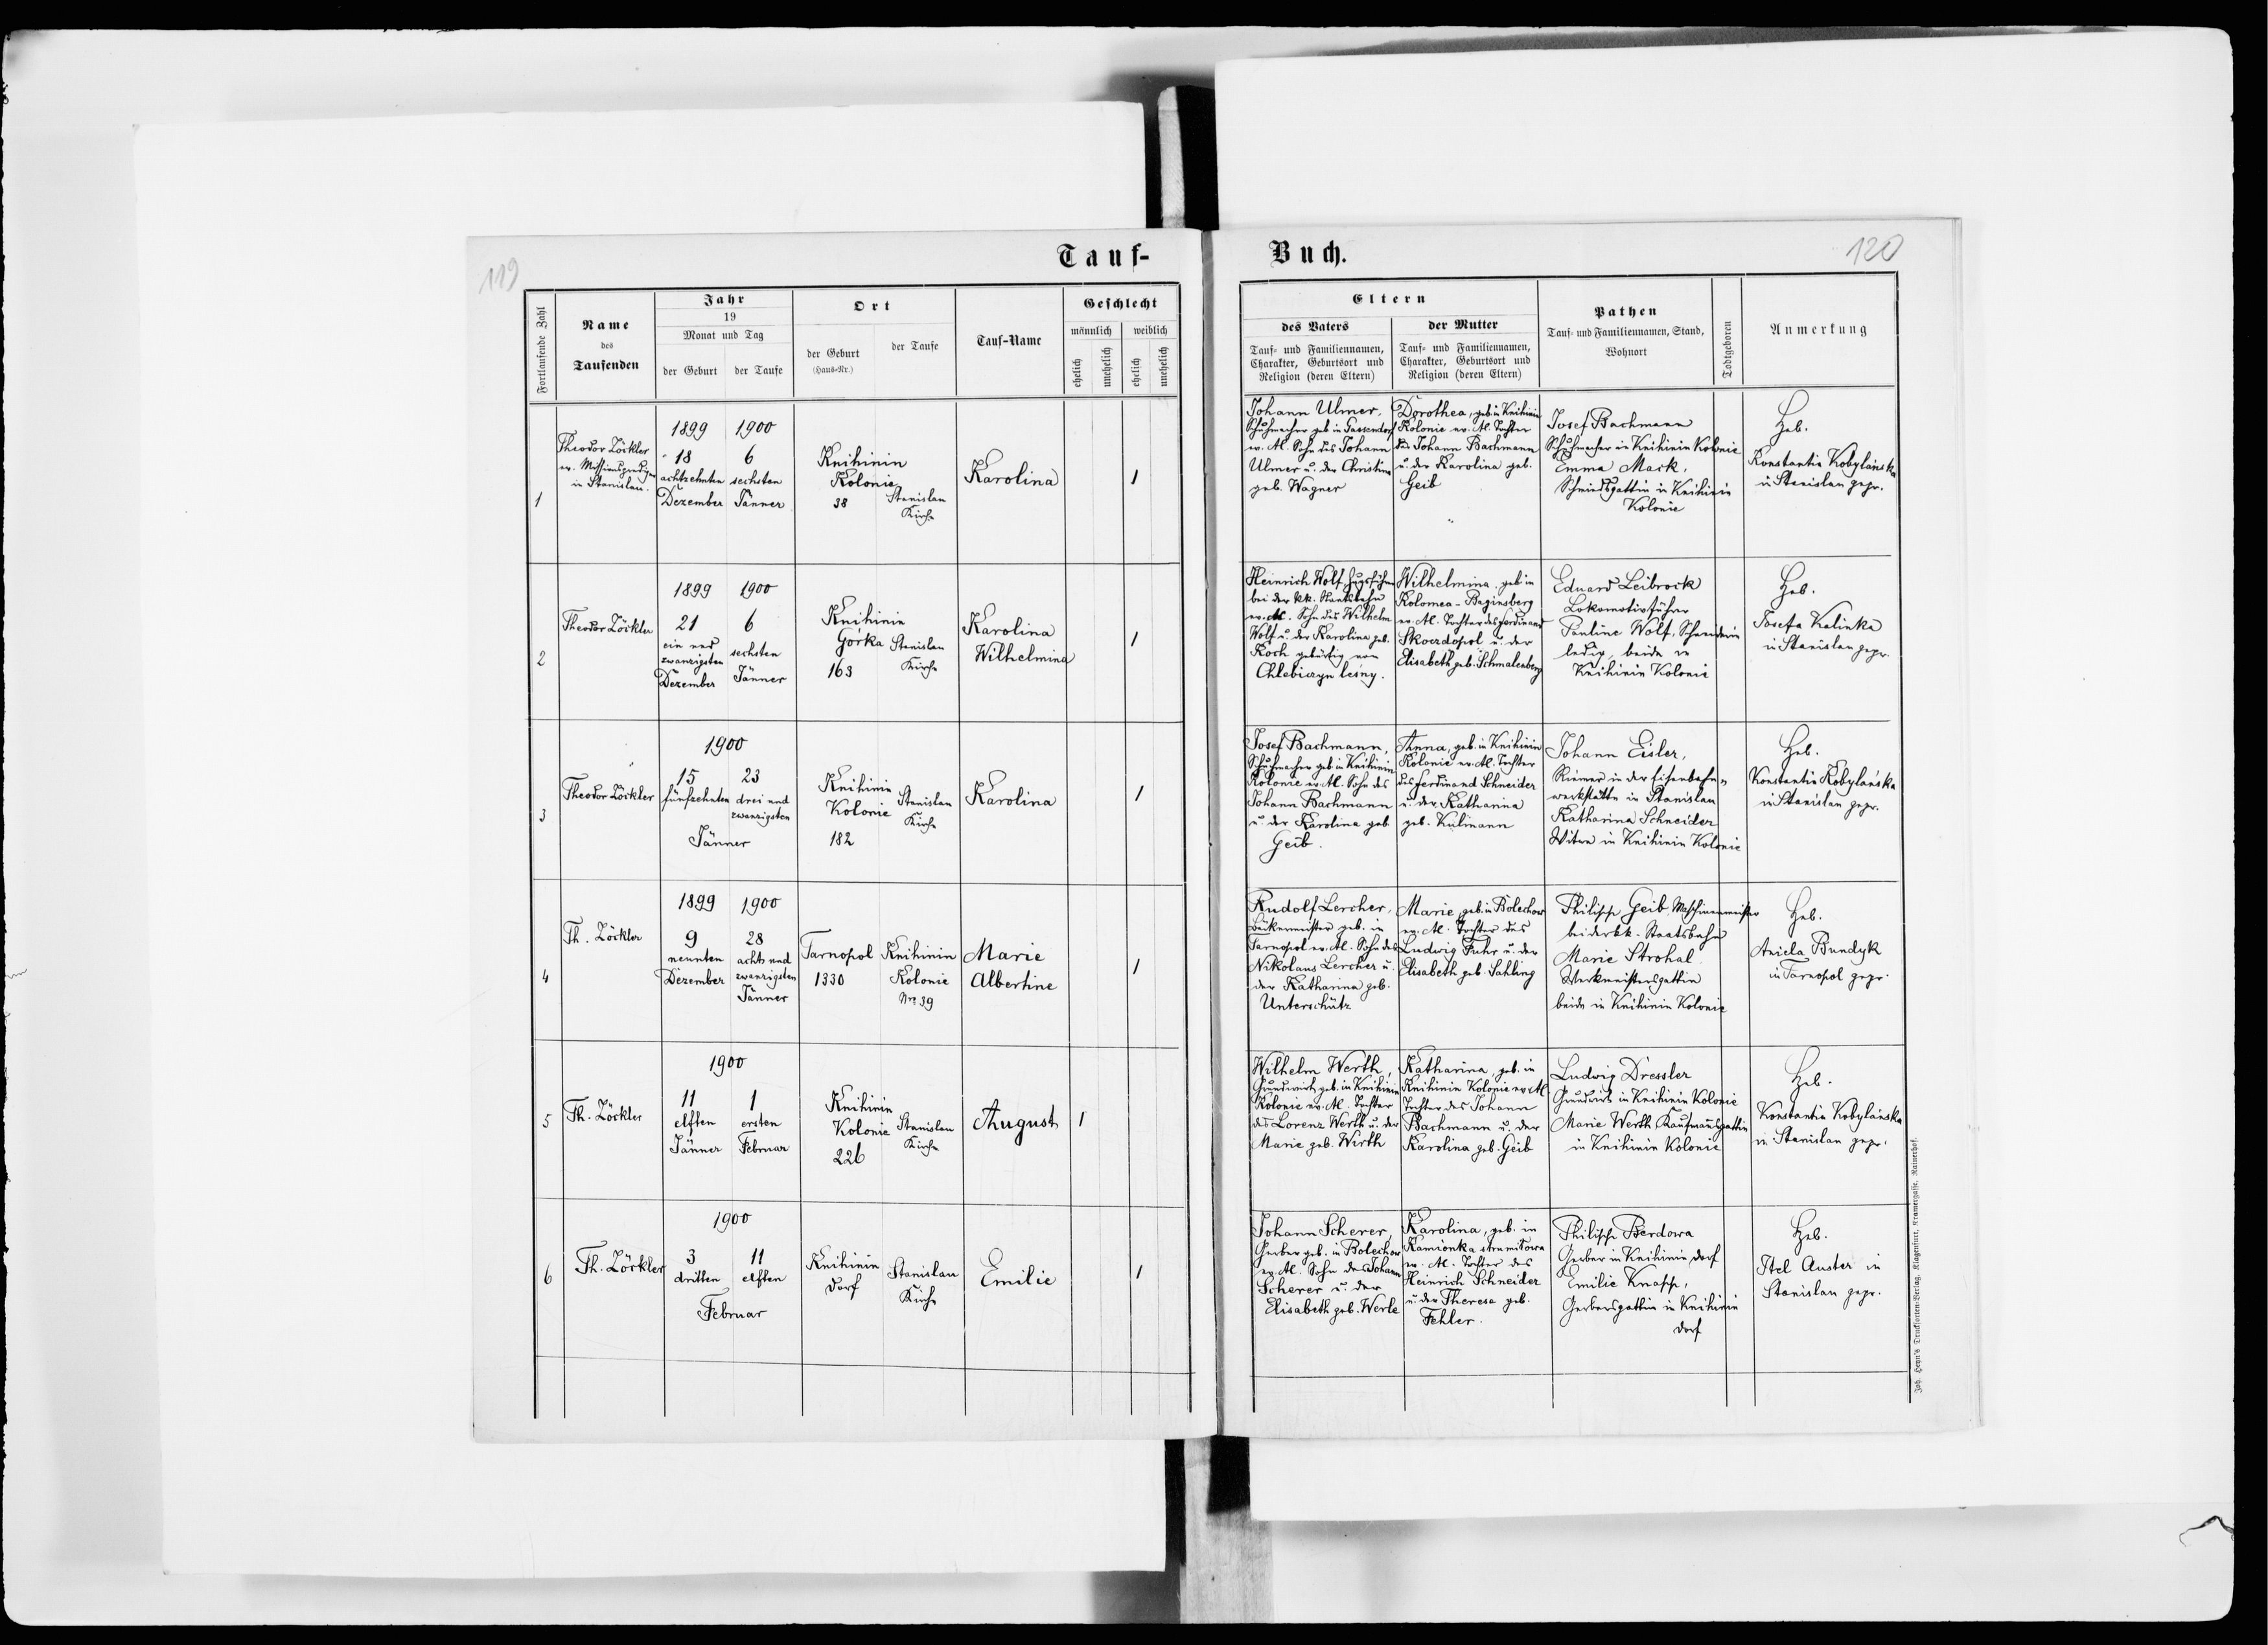 119
Tauf-
Fortlaufende Zahl
Name
des
Taufenden
Jahr
19
Monat und Tag
der Geburt
der Taufe
Ort
der Geburt
(Haus-Nr.)
der Taufe
Tauf-Name
Geschlecht
männlich
weiblich
ehelich
unehelich
ehelich
unehelich
1
Theodor Zöckler
ev. Missionsprediger
in Stanislau.
1899
18
achtzehnten
Dezember
1900
6
sechsten
Jänner
Knihinin
Kolonie
38
Stanislau
Kirche
Karolina
1
2
Theodor Zöckler
1899
21
ein und
zwanzigsten
Dezember
1900
6
sechsten
Jänner
Knihinin
Górka
163
Stanislau
Kirche
Karolina
Wilhelmina
1
3
Theodor Zöckler
1900
15
fünfzehnten
23
drei und
zwanzigsten
Jänner
Knihinin
Kolonie
182
Stanislau
Kirche
Karolina
1
4
Th. Zöckler
1899
9
neunten
Dezember
1900
28
acht und
zwanzigsten
Jänner
Tarnopol
1330
Knihinin
Kolonie
Nro 39
Marie
Albertine
1
5
Th. Zöckler
1900
11
elften
Jänner
1
ersten
Februar
Knihinin
Kolonie
226
Stanislau
Kirche
August
1
6
Th. Zöckler
1900
3
dritten
11
elften
Februar
Knihinin
Dorf
Stanislau
Kirche
Emilie
1
Buch.
120
Eltern
des Vaters
Tauf- und Familiennamen,
Charakter, Geburtsort und
Religion (deren Eltern)
der Mutter
Tauf- und Familiennamen,
Charakter, Geburtsort und
Religion (deren Eltern)
Pathen
Tauf- und Familiennamen, Stand,
Wohnort
Todtgeboren
Anmerkung
Johann Ulmer,
Schuhmacher geb. in
ev. Al. Sohn des Johann
Ulmer u. der Christina
geb. Wagner
Dorothea, geb. in Knihinin
Kolonie ev. Al. Tochter
des Johann Bachmann
u. der Karolina geb.
Geib
Josef Bachmann
Schuhmacher in Knihinin Kolonie
Emma Mack,
Schmiedsgattin in Knihinin
Kolonie
Heb.
Konstantia Kobylańska
in Stanislau gepr.
Heinrich Wolf, Zugsführer
bei der kk. Staatsbahn
ev. Al. Sohn des Wilhelm
Wolf u. der Karolina geb.
Koch gebürtig von
Chlebiczyn leśny.
Wilhelmina, geb. in
Kolomea-Baginsberg
ev. Al. Tochter des Ferdinand
Skoerdopol u. der
Elisabeth geb. Schmalenberg
Eduard Leibrock
Lokomotivführer
Pauline Wolf, Schneiderin
ledig, beide in
Knihinin Kolonie
Heb.
Josefa Kalinka
in Stanislau gepr.
Josef Bachmann,
Schuhmacher geb. in Knihinin
Kolonie ev. Al. Sohn des
Johann Bachmann
u. der Karolina geb.
Geib.
Anna, geb. in Knihinin
Kolonie ev. Al. Tochter
des Ferdinand Schneider
u. der Katharina
geb. Kulmann
Johann Eisler,
Riemer in der Eisenbahn-
werkstätte in Stanislau
Katharina Schneider
Witwe in Knihinin Kolonie
Heb.
Konstantia Kobylańska
in Stanislau gepr.
Rudolf Lercher,
Bäckermeister geb. in
Tarnopol ev. Al. Sohn des
Nikolaus Lercher u.
der Katharina geb.
Unterschütz
Marie, geb. in Bolechow
ev. Al. Tochter des
Ludwig Fuhr u. der
Elisabeth geb. Sahling
Philipp Geib, Maschinenmeister
bei der kk. Staatsbahn
Marie Strohal
Werkmeistersgattin
beide in Knihinin Kolonie
Heb.
Aniela Bundyk
in Tarnopol gepr.
Wilhelm Werth,
Grundwirth geb. in Knihinin
Kolonie ev. Al. Tochter
des Lorenz Werth u. der
Marie geb. Wirth
Katharina, geb. in
Knihinin Kolonie ev. Al.
Tochter des Johann
Bachmann u. der
Karolina geb. Geib
Ludwig Dressler
Grundwirt in Knihinin Kolonie
Marie Werth Kaufmansgattin
in Knihinin Kolonie
Heb.
Konstantia Kobylańska
in Stanislau gepr.
Johann Scherer,
Gerber geb. in Bolechow
ev. Al. Sohn des Johann
Scherer u. der
Elisabeth geb. Werle
Karolina, geb. in
Kamionka strumiłowa
ev. Al. Tochter des
Heinrich Schneider
u. der Theresa geb.
Fehler.
Philipp Berdowa
Gerber in Knihinin Dorf
Emilie Knapp,
Gerbersgattin in Knihinin
Dorf
Heb.
Itel Auster in
Stanislau gepr.
Joh. Heyn's Drucksorten-Verlag, Klagenfurt, Kramergasse, Rainerhof.